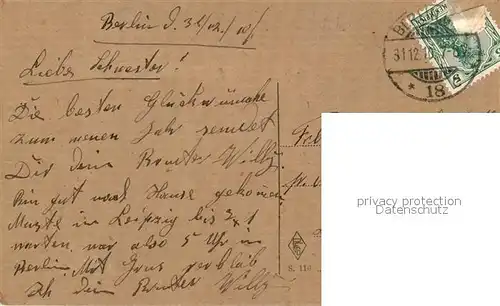 Berlin d. 31/12.
Liebe Schwester!
Die besten Glückwünsche
zum neuen Jahr sendet
Dir dein Bruder Willy.
Bin gut nach Hause gekommen
Musste in Leipzig bis 3x1
warten, war also 5 Uhr in
Berlin. Mit Gruss verbleib
ich dein Bruder Willy
31.12.
* 18
S. 110
privacy protection
Datenschutz